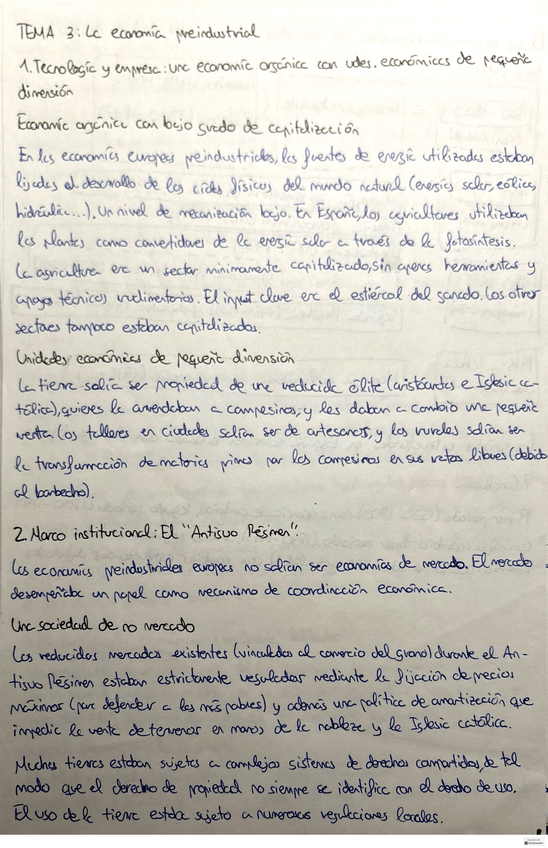 TEMA 3: La economía preindustrial
1. Tecnología y empresa: una economía orgánica con udes. económicas de pequeña
dimensión
Economía orgánica con bajo grado de capitalización
En las economías europeas preindustriales, las fuentes de energía utilizadas estaban
ligadas al desarrollo de los ciclos físicos del mundo natural (energías solar, eólica,
hidráulica...). Un nivel de mecanización bajo. En España, los agricultores utilizaban
las plantas como convertidores de la energía solar a través de la fotosíntesis.
La agricultura era un sector minimamente capitalizado, sin apenas herramientas y
apoyos técnicos rudimentarios. El input clave era el estiércol del ganado. Los otros
sectores tampoco estaban capitalizados.
Unidades económicas de pequeña dimensión
La tierra solía ser propiedad de una reducida élite (aristócratas e Iglesia ca-
tólica), quienes la arrendaban a campesinos, y les daban a cambio una pequeña
renta. Los talleres en ciudades solían ser de artesanos, y los rurales solían ser
la transformación de materias primas por los campesinos en sus ratos libres (debido
al barbecho).
2. Marco institucional: El "Antiguo Régimen".
Las economías preindustriales europeas no solían ser economías de mercado. El mercado
desempeñaba un papel como mecanismo de coordinación económica.
Una sociedad de no mercado
Los reducidos mercados existentes (vinculados al comercio del grano) durante el An-
tiguo Régimen estaban estrictamente regulados mediante la fijación de precios
máximos (para defender a los más pobres) y además una política de amortización que
impedía la venta de terrenos en manos de la nobleza y la Iglesia católica.
Muchas tierras estaban sujetas a complejos sistemas de derechos compartidos, de tal
modo que el derecho de propiedad no siempre se identifica con el derecho de uso.
El uso de la tierra estaba sujeto a numerosas regulaciones locales.